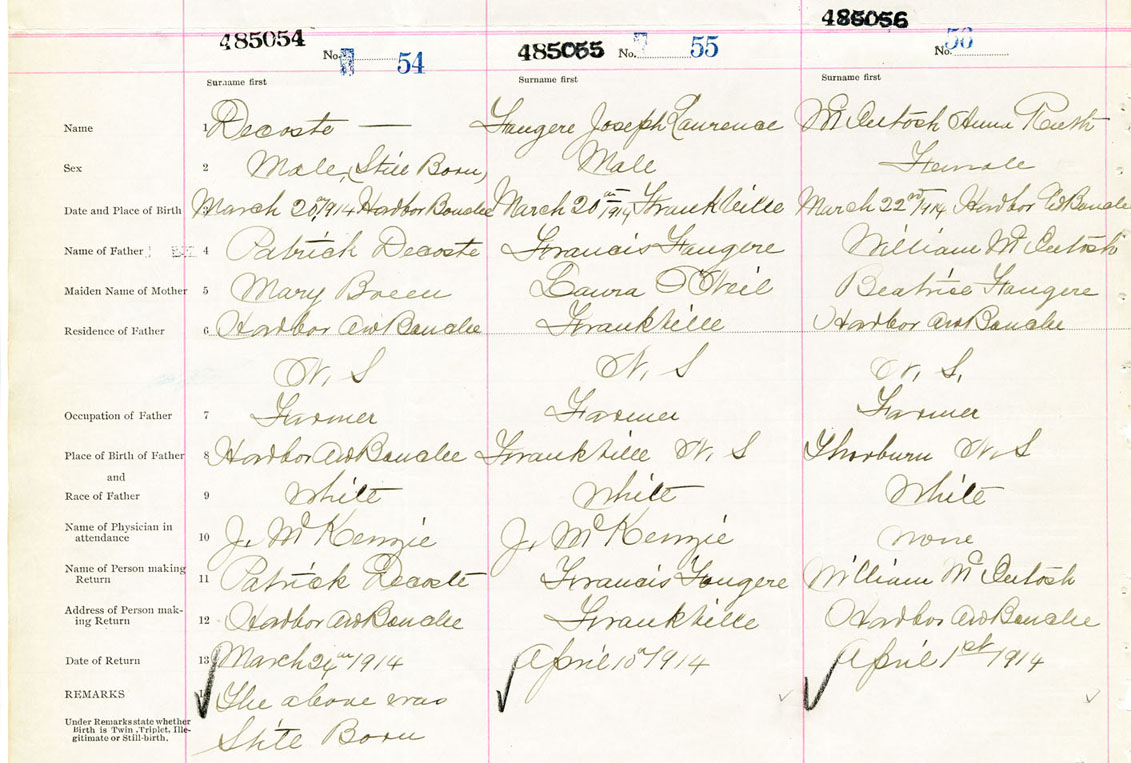 485054 485055 485056
No. 54 No. 55 No. 56
Surname first Surname first Surname first
Name 1 Decoste — Faugere Joseph Laurence McIntosh Anna Ruth
Sex 2 Male, (Still Born) Male Female
Date and Place of Birth March 20 1914 Harbor Bouche March 20 1914 Frankville March 22nd 1914 Harbor Bouche
Name of Father 4 Patrick Decoste Francis Faugere William McIntosh
Maiden Name of Mother 5 Mary Breen Laura O'Neil Beatrice Faugere
Residence of Father 6 Harbor Au Bouche Frankville Harbor Au Bouche
N. S N. S N. S.
Occupation of Father 7 Farmer Farmer Farmer
Place of Birth of Father 8 Harbor Au Bouche Frankville N. S Thorburn N. S
and
Race of Father 9 White White White
Name of Physician in
attendance 10 J. McKenzie J. McKenzie none
Name of Person making
Return 11 Patrick Decoste Francis Faugere William McIntosh
Address of Person mak-
ing Return 12 Harbor Au Bouche Frankville Harbor Au Bouche
Date of Return 13 March 1914 April 10 1914 April 1st 1914
REMARKS The above was
Under Remarks state whether
Birth is Twin, Triplet, Ille-
gitimate or Still-birth. Still Born